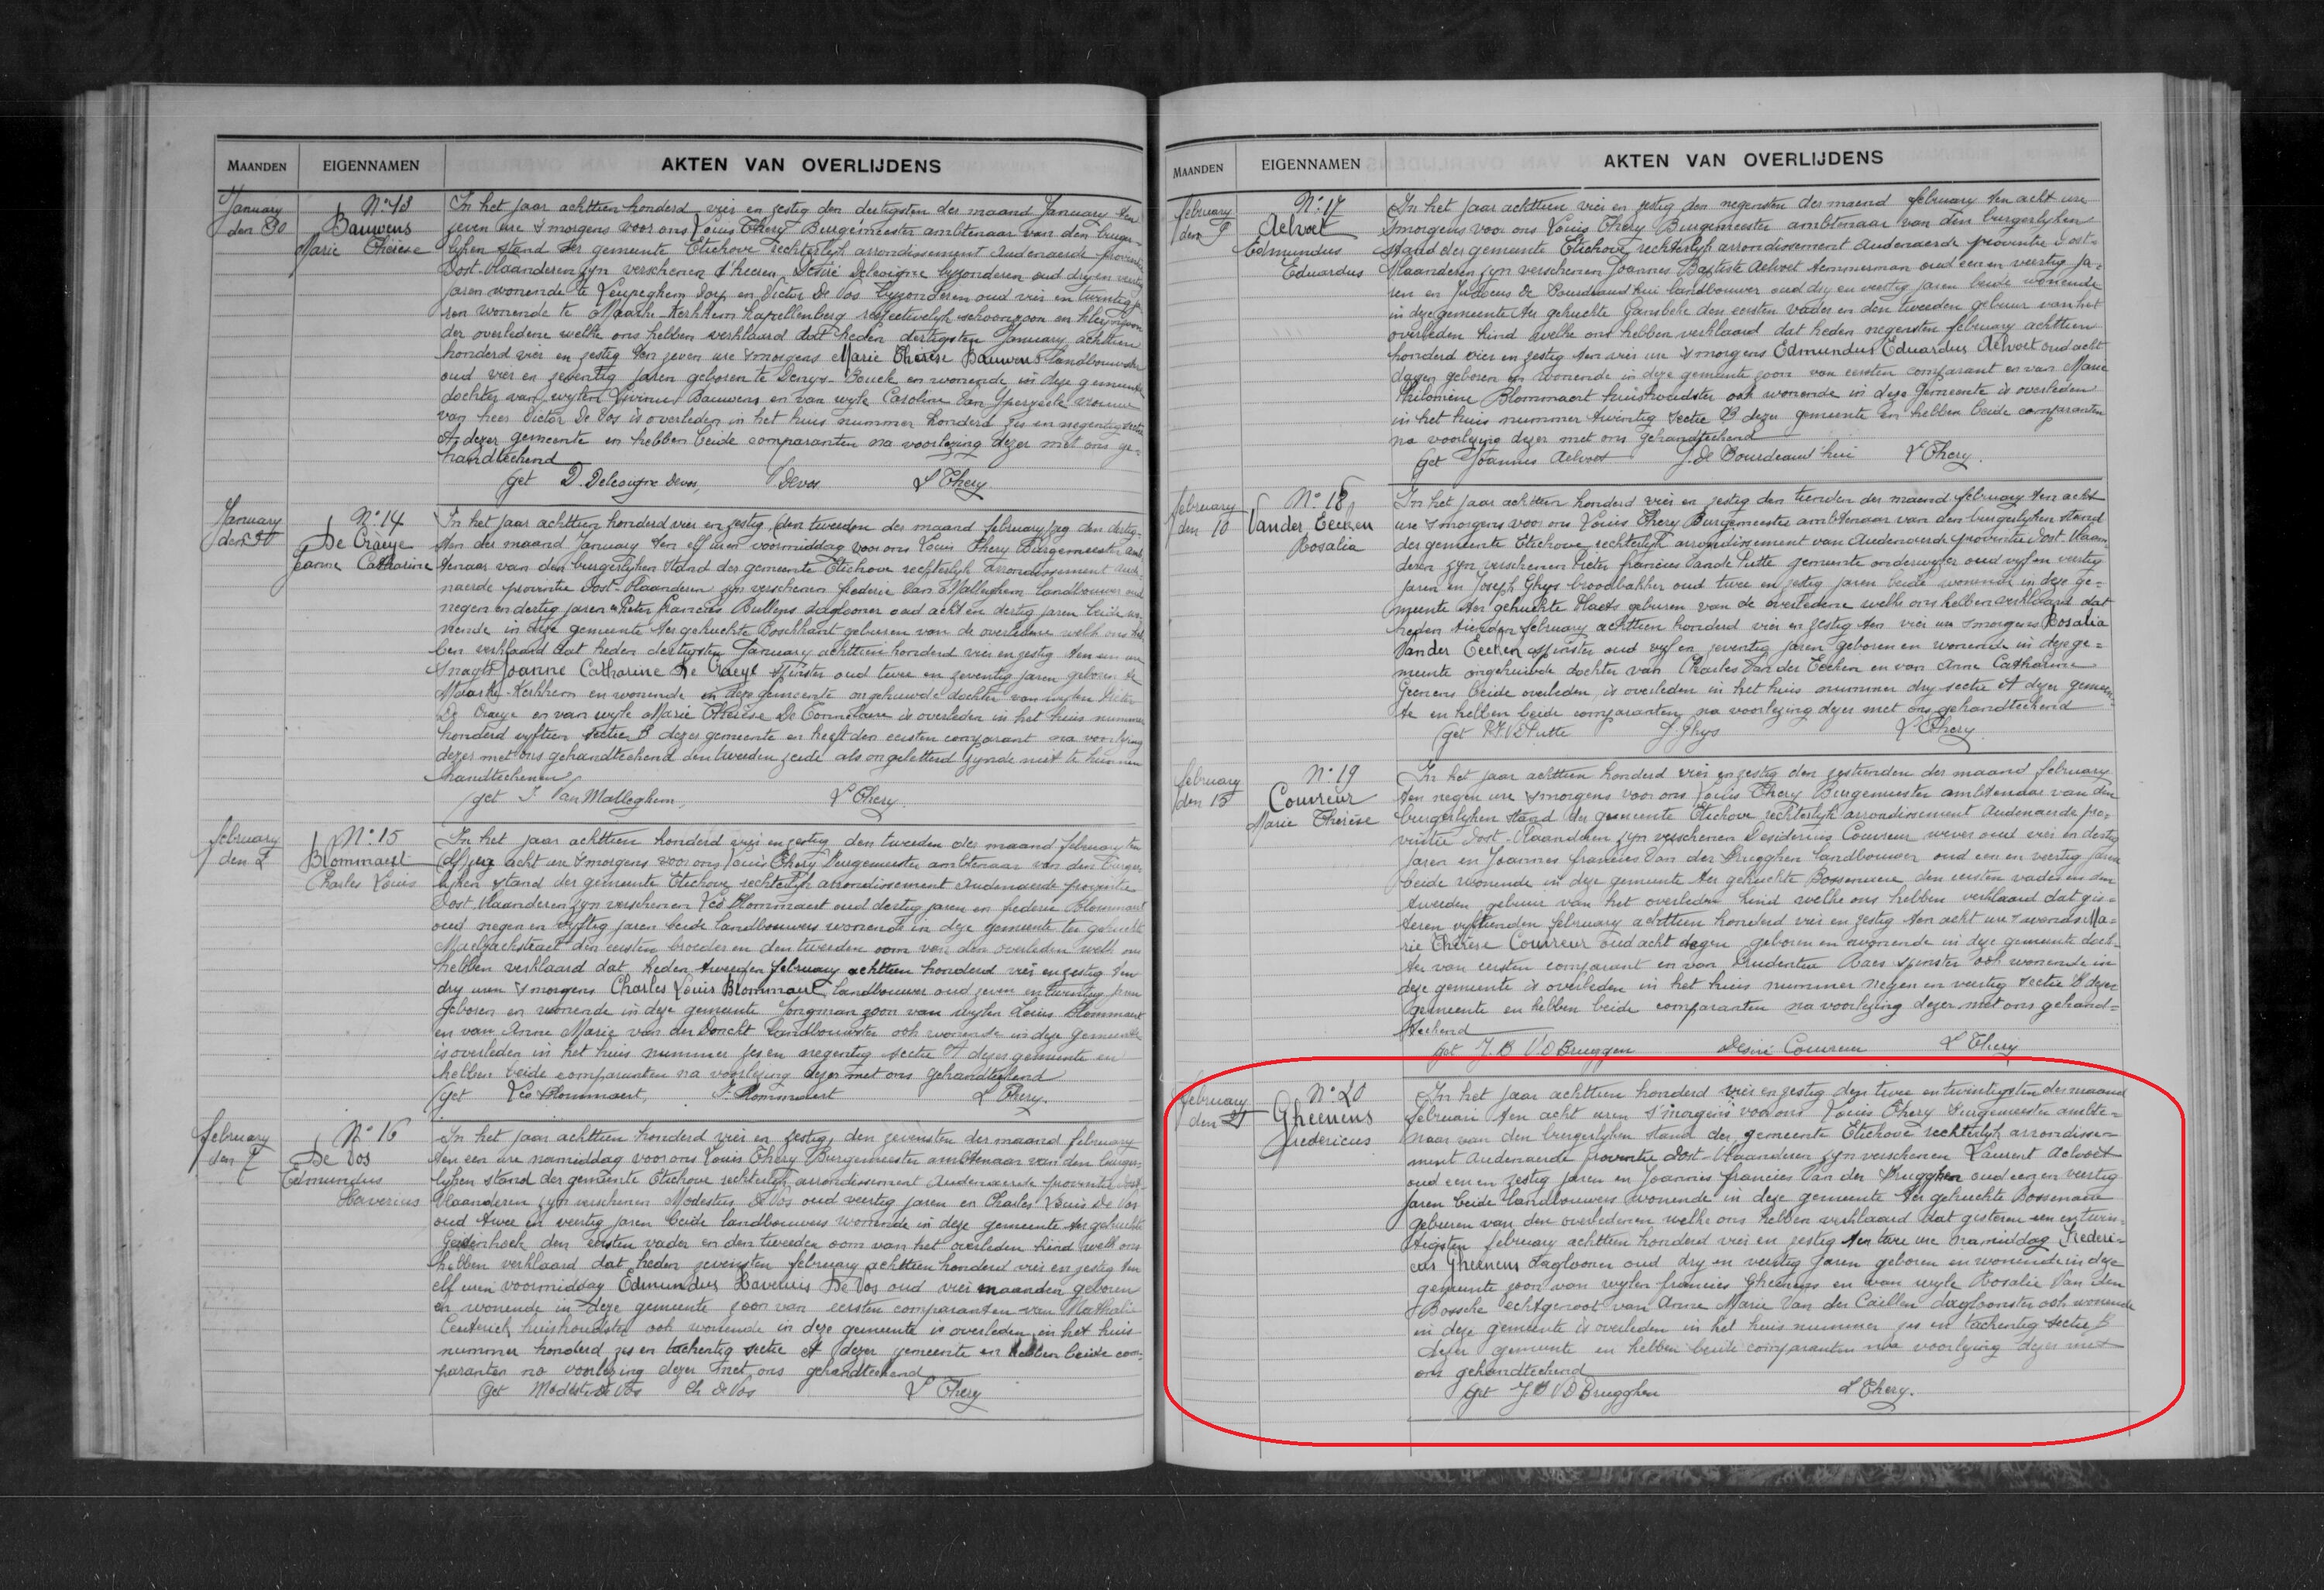 MAANDEN EIGENNAMEN AKTEN VAN OVERLIJDENS
January
den 30
N° 13
Bauwens
Marie Thérèse
In het jaar achttien honderd vier en zestig den dertigsten der maand January ten
zeven ure s'morgens voor ons Louis Thery Burgemeester ambtenaar van den burger-
lyken stand der gemeente Etichove rechterlyk arrondissement Audenaerde provintie
Oost-Vlaanderen zyn verschenen d'heeren Désiré Delcoigne byzonderen oud dry en veertig
jaren wonende te Leupeghem dorp en Victor De Vos byzonderen oud vier en twintig ja-
ren wonende te Maarke-Kerkhem Kapellenberg respectivelyk schoonzoon en kleinzoon
der overledene welke ons hebben verklaard dat heden dertigsten January achttien
honderd vier en zestig ten zeven ure s'morgens Marie Thérèse Bauwens landbouwster
oud vier en zeventig jaren geboren te Denys-Boucle en wonende in deze gemeente
dochter van wylen Livinus Bauwens en van wyle Caroline Van Yperzeele vrouw
van heer Victor De Vos is overleden in het huis nummer honderd zes en negentig sectie
A dezer gemeente en hebben beide comparanten na voorlezing dezer met ons ge-
handteekend
get D. Delcoigne Devos, V Devos L Thery.
January
den 30
N° 14
De Craeye
Jeanne Catharine
In het jaar achttien honderd vier en zestig (den tweeden der maand february) zeg den dertig-
sten der maand January ten elf uren voormiddag voor ons Louis Thery Burgemeester amb-
tenaar van den burgerlyken stand der gemeente Etichove rechterlyk arrondissement Aude-
naerde provintie Oost-Vlaanderen zyn verschenen frederic Van Malleghem landbouwer oud
negen en dertig jaren en Pieter francies Bultens daglooner oud acht en dertig jaren beide wo-
nende in deze gemeente ter gehuchte Boschkant geburen van de overledene welk ons heb-
ben verklaard dat heden dertigsten January achttien honderd vier en zestig ten een ure
s'nagts Joanne Catharine De Craeye spinster oud twee en zeventig jaren geboren te
Maarke-Kerkhem en wonende in deze gemeente ongehuwde dochter van wylen Pieter
De Craeye en van wyle Marie Thérèse De Connelaure is overleden in het huis nummer
honderd vyftien sectie B dezer gemeente en heeft den eersten comparant na voorlezing
dezer met ons gehandteekend den tweeden zeide als ongeletterd zynde niet te kunnen
handteekenen
get F. Van Malleghem, L Thery.
february
den 2
N° 15
Blommaert
Charles Louis
In het jaar achttien honderd vier en zestig den tweeden der maand february ten
elf zeg acht ure s'morgens voor ons Louis Thery Burgemeester ambtenaar van den burger-
lyken stand der gemeente Etichove rechterlyk arrondissement Audenaerde provintie
Oost-Vlaanderen zyn verschenen Léo Blommaert oud dertig jaren en frederic Blommaert
oud negen en vyftig jaren beide landbouwers wonende in deze gemeente ter gehuchte
Maelzackstraet den eersten broeder en den tweeden oom van den overleden welk ons
hebben verklaard dat heden tweeden february achttien honderd vier en zestig ten
dry uren s'morgens Charles Louis Blommaert landbouwer oud zeven en twintig jaren
geboren en wonende in deze gemeente jongman zoon van wylen Louis Blommaert
en van Anne Marie van der Donckt landbouwster ook wonende in deze gemeente
is overleden in het huis nummer zes en negentig sectie A dezer gemeente en
hebben beide comparanten na voorlezing dezer met ons gehandteekend
get Léo Blommaert, F. Blommaert L Thery.
february
den 7
N° 16
De Vos
Edmundus
Xaverius
In het jaar achttien honderd vier en zestig, den zevensten der maand february
ten een ure namiddag voor ons Louis Thery Burgemeester ambtenaar van den burger-
lyken stand der gemeente Etichove rechterlyk arrondissement Audenaerde provintie Oost-
Vlaanderen zyn verschenen Modestus De Vos oud veertig jaren en Charles Louis De Vos
oud twee en veertig jaren beide landbouwers wonende in deze gemeente ter gehuchte
den eersten vader en den tweeden oom van het overleden kind welk ons
hebben verklaard dat heden zevensten february achttien honderd vier en zestig ten
elf uren voormiddag Edmundus Xaverius De Vos oud vier maanden geboren
en wonende in deze gemeente zoon van eersten comparant en van Nathalie
Ceuterick huishoudster ook wonende in deze gemeente is overleden in het huis
nummer honderd zes en tachentig sectie A dezer gemeente en hebben beide com-
paranten na voorlezing dezer met ons gehandteekend
get Modeste De Vos Ch de Vos L Thery
MAANDEN EIGENNAMEN AKTEN VAN OVERLIJDENS
february
den 9
N° 17
Aelvoet
Edmundus
Eduardus
In het jaar achttien vier en zestig den negensten der maend february ten acht ure
s'morgens voor ons Louis Thery Burgemeester ambtenaar van den burgerlyken
stand der gemeente Etichove rechterlyk arrondissement Audenaerde provintie Oost-
Vlaanderen zyn verschenen Joannes Baptiste Aelvoet temmerman oud een en veertig ja-
ren en Judocus De Bourdeaud'hui landbouwer oud dry en veertig jaren beide wonende
in deze gemeente ter gehuchte Gansbeke den eersten vader en den tweeden gebuur van het
overleden kind welke ons hebben verklaard dat heden negensten february achttien
honderd vier en zestig ten vier ure s'morgens Edmundus Eduardus Aelvoet oud acht
dagen geboren en wonende in deze gemeente zoon van eersten comparant en van Marie
Philomène Blommaert huishoudster ook wonende in deze gemeente is overleden
in het huis nummer twintig sectie B dezer gemeente en hebben beide comparanten
na voorlezing dezer met ons gehandteekend
get Joannes Aelvoet J. De Bourdeaud'hui L Thery.
february
den 10
N° 18
Vander Eecken
Rosalia
In het jaar achttien honderd vier en zestig den tienden der maand february ten acht
ure s'morgens voor ons Louis Thery Burgemeester ambtenaar van den burgerlyken stand
der gemeente Etichove rechterlyk arrondissement van Audenaerde provintie Oost-Vlaan-
deren zyn verschenen Pieter francies Vande Putte gemeente onderwyzer oud vyf en veertig
jaren en Joseph Ghys broodbakker oud twee en zestig jaren beide wonende in deze ge-
meente ter gehuchte Plaets geburen van de overledene welke ons hebben verklaard dat
heden tienden february achttien honderd vier en zestig ten vier ure s'morgens Rosalia
Van der Eecken spinster oud vyf en zeventig jaren geboren en wonende in deze ge-
meente ongehuwde dochter van Charles Van der Eecken en van Anne Catharine
Geenens beide overleden, is overleden in het huis nummer dry sectie A dezer gemeen-
te en hebben beide comparanten na voorlezing dezer met ons gehandteekend
get P.F. VD Putte J. Ghys L Thery.
february
den 15
N° 19
Couvreur
Marie Thérèse
In het jaar achttien honderd vier en zestig den zestienden der maand february
ten negen ure s'morgens voor ons Louis Thery Burgemeester ambtenaar van den
burgerlyken stand der gemeente Etichove rechterlyk arrondissement Audenaerde pro-
vintie Oost-Vlaanderen zyn verschenen Desiderius Couvreur wever oud vier en dertig
jaren en Joannes francies Van der Brugghen landbouwer oud een en veertig jaren
beide wonende in deze gemeente ter gehuchte Bossenaere den eersten vader en den
tweeden gebuur van het overleden kind welke ons hebben verklaard dat gis-
teren vyftienden february achttien honderd vier en zestig ten acht ure s'avonds Ma-
rie Thérèse Couvreur oud acht dagen geboren en wonende in deze gemeente doch-
ter van eersten comparant en van Prudentia Raes spinster ook wonende in
deze gemeente is overleden in het huis nummer negen en veertig sectie B dezer
gemeente en hebben beide comparanten na voorlezing dezer met ons gehand-
teekend
get J. B VD Bruggen Désiré Couvreur L Thery
february
den 21
N° 20
Gheenens
fredericus
In het jaar achttien honderd vier en zestig den twee en twintigsten der maand
februari ten acht uren s'morgens voor ons Louis Thery Burgemeester ambte-
naar van den burgerlyken stand der gemeente Etichove rechterlyk arrondisse-
ment Audenaerde provintie Oost-Vlaanderen zyn verschenen Laurent Aelvoet
oud een en zestig jaren en Joannes francies Van der Brugghen oud een en veertig
jaren beide landbouwers wonende in deze gemeente ter gehuchte Bossenaere
geburen van den overledenen welke ons hebben verklaard dat gisteren een en twin-
tigsten february achttien honderd vier en zestig ten twee ure namiddag Frederi-
cus Gheenens daglooner oud dry en veertig jaren geboren en wonende in deze
gemeente zoon van wylen francies Gheenens en van wyle Rosalie Van den
Bossche echtgenoot van Anne Marie Van der Caellen dagloonster ook wonende
in deze gemeente is overleden in het huis nummer zes en tachentig sectie B
dezer gemeente en hebben beide comparanten na voorlezing dezer met
ons gehandteekend
get J. B VD Brugghen L Thery.